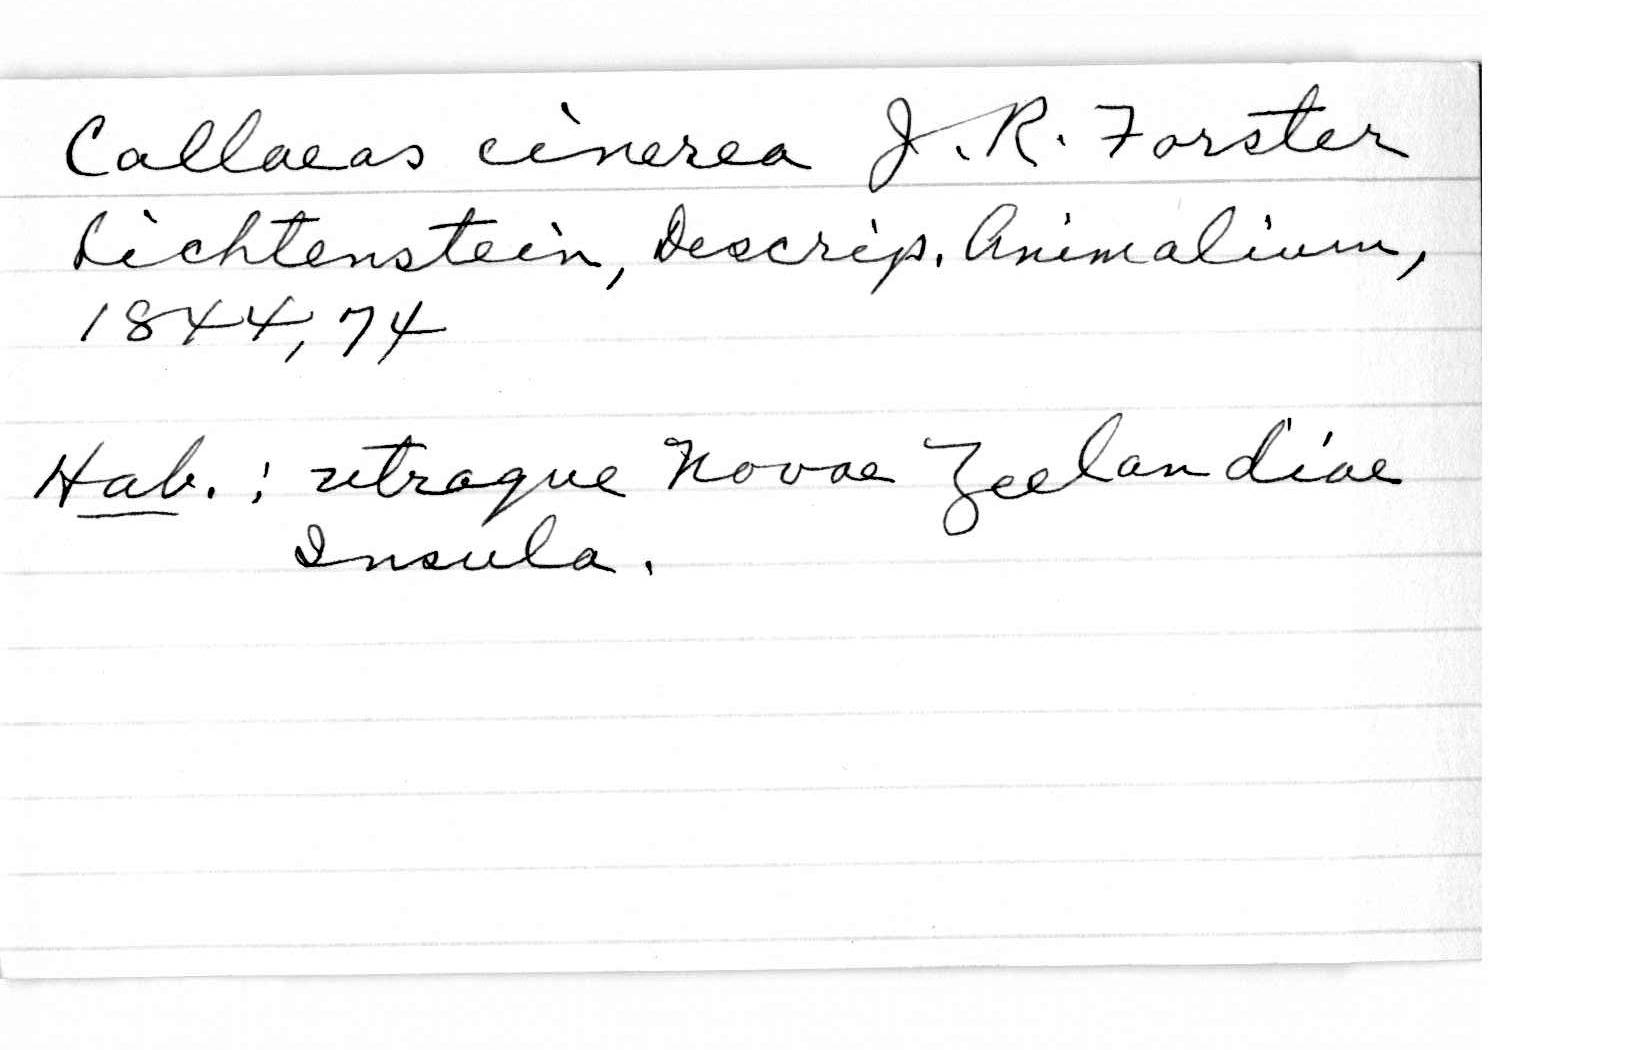 Callaeas cinerea J. R. Forster
Lichtenstein, Descrip. Animalium,
1844, 74
Hab. : utraque Novae Zeelandiae
Insula.